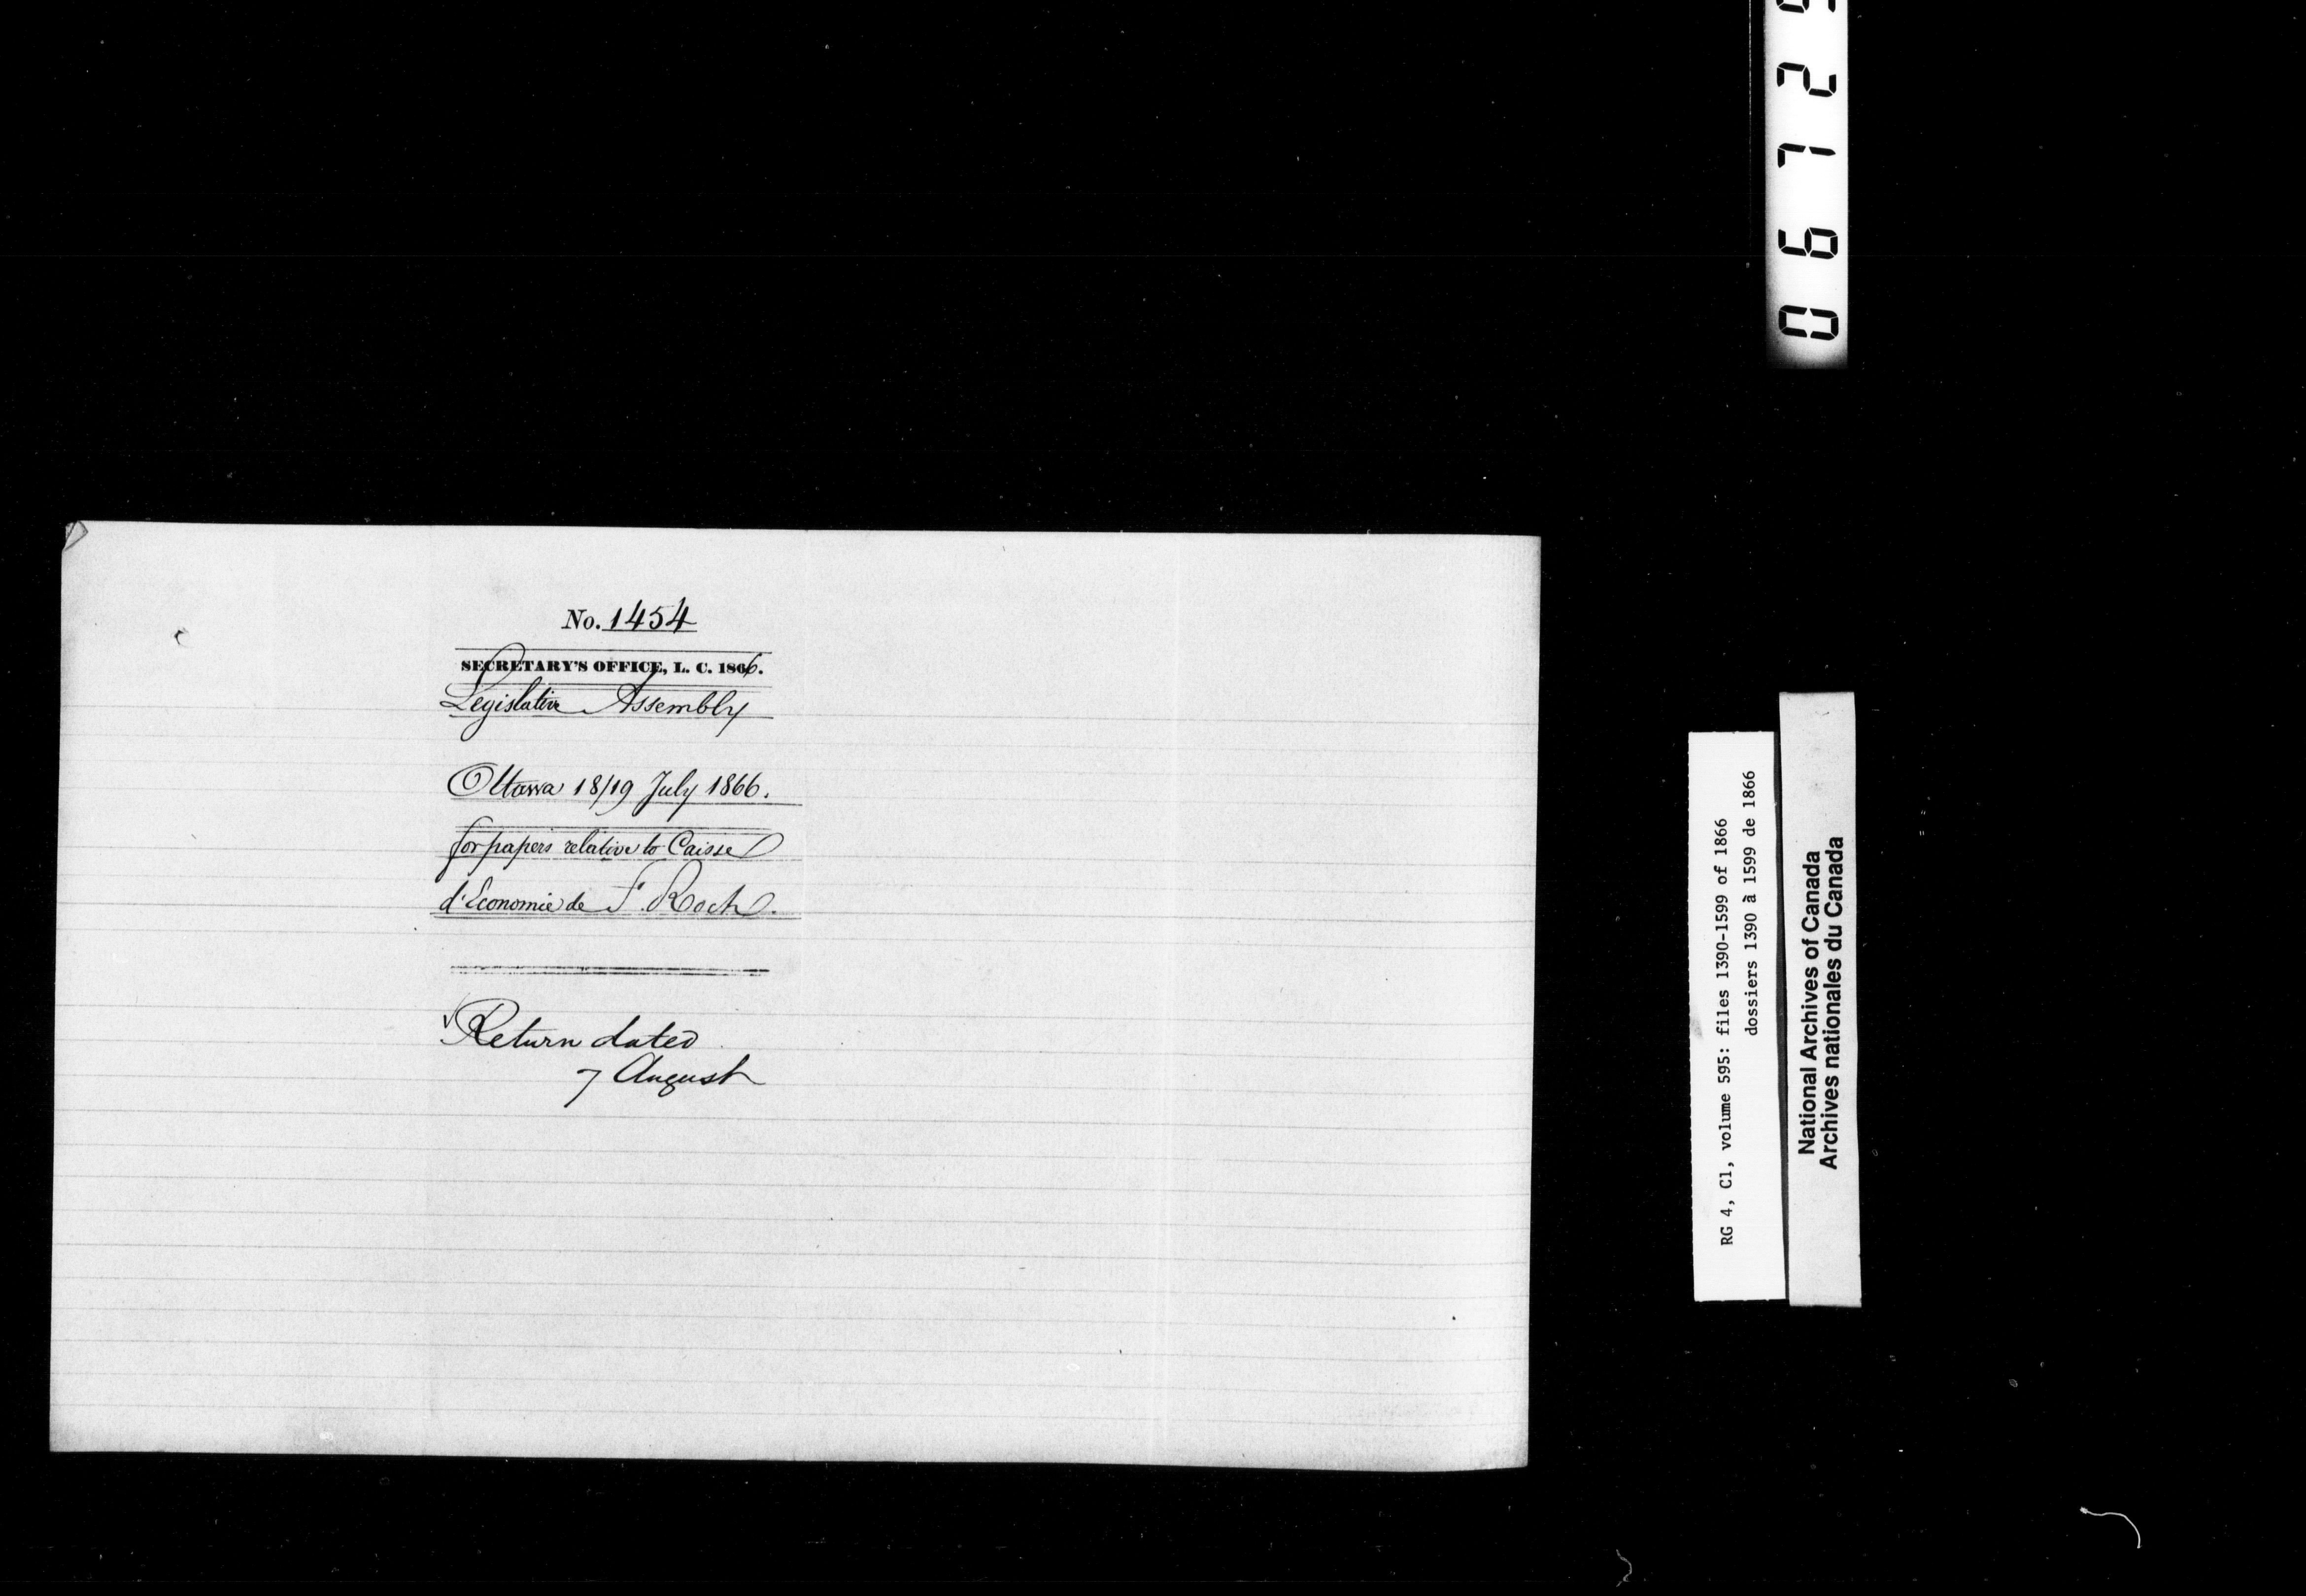 No. 1454
SECRETARY'S OFFICE, L. C. 1866.
Legislative Assembly
Ottawa 18/19 July 1866.
for papers relative to Caisse
d'Economie de St. Roch.
Return dated
7 August
RG 4, C1, volume 595: files 1390-1599 of 1866
dossiers 1390 à 1599 de 1866
National Archives of Canada
Archives nationales du Canada
0672